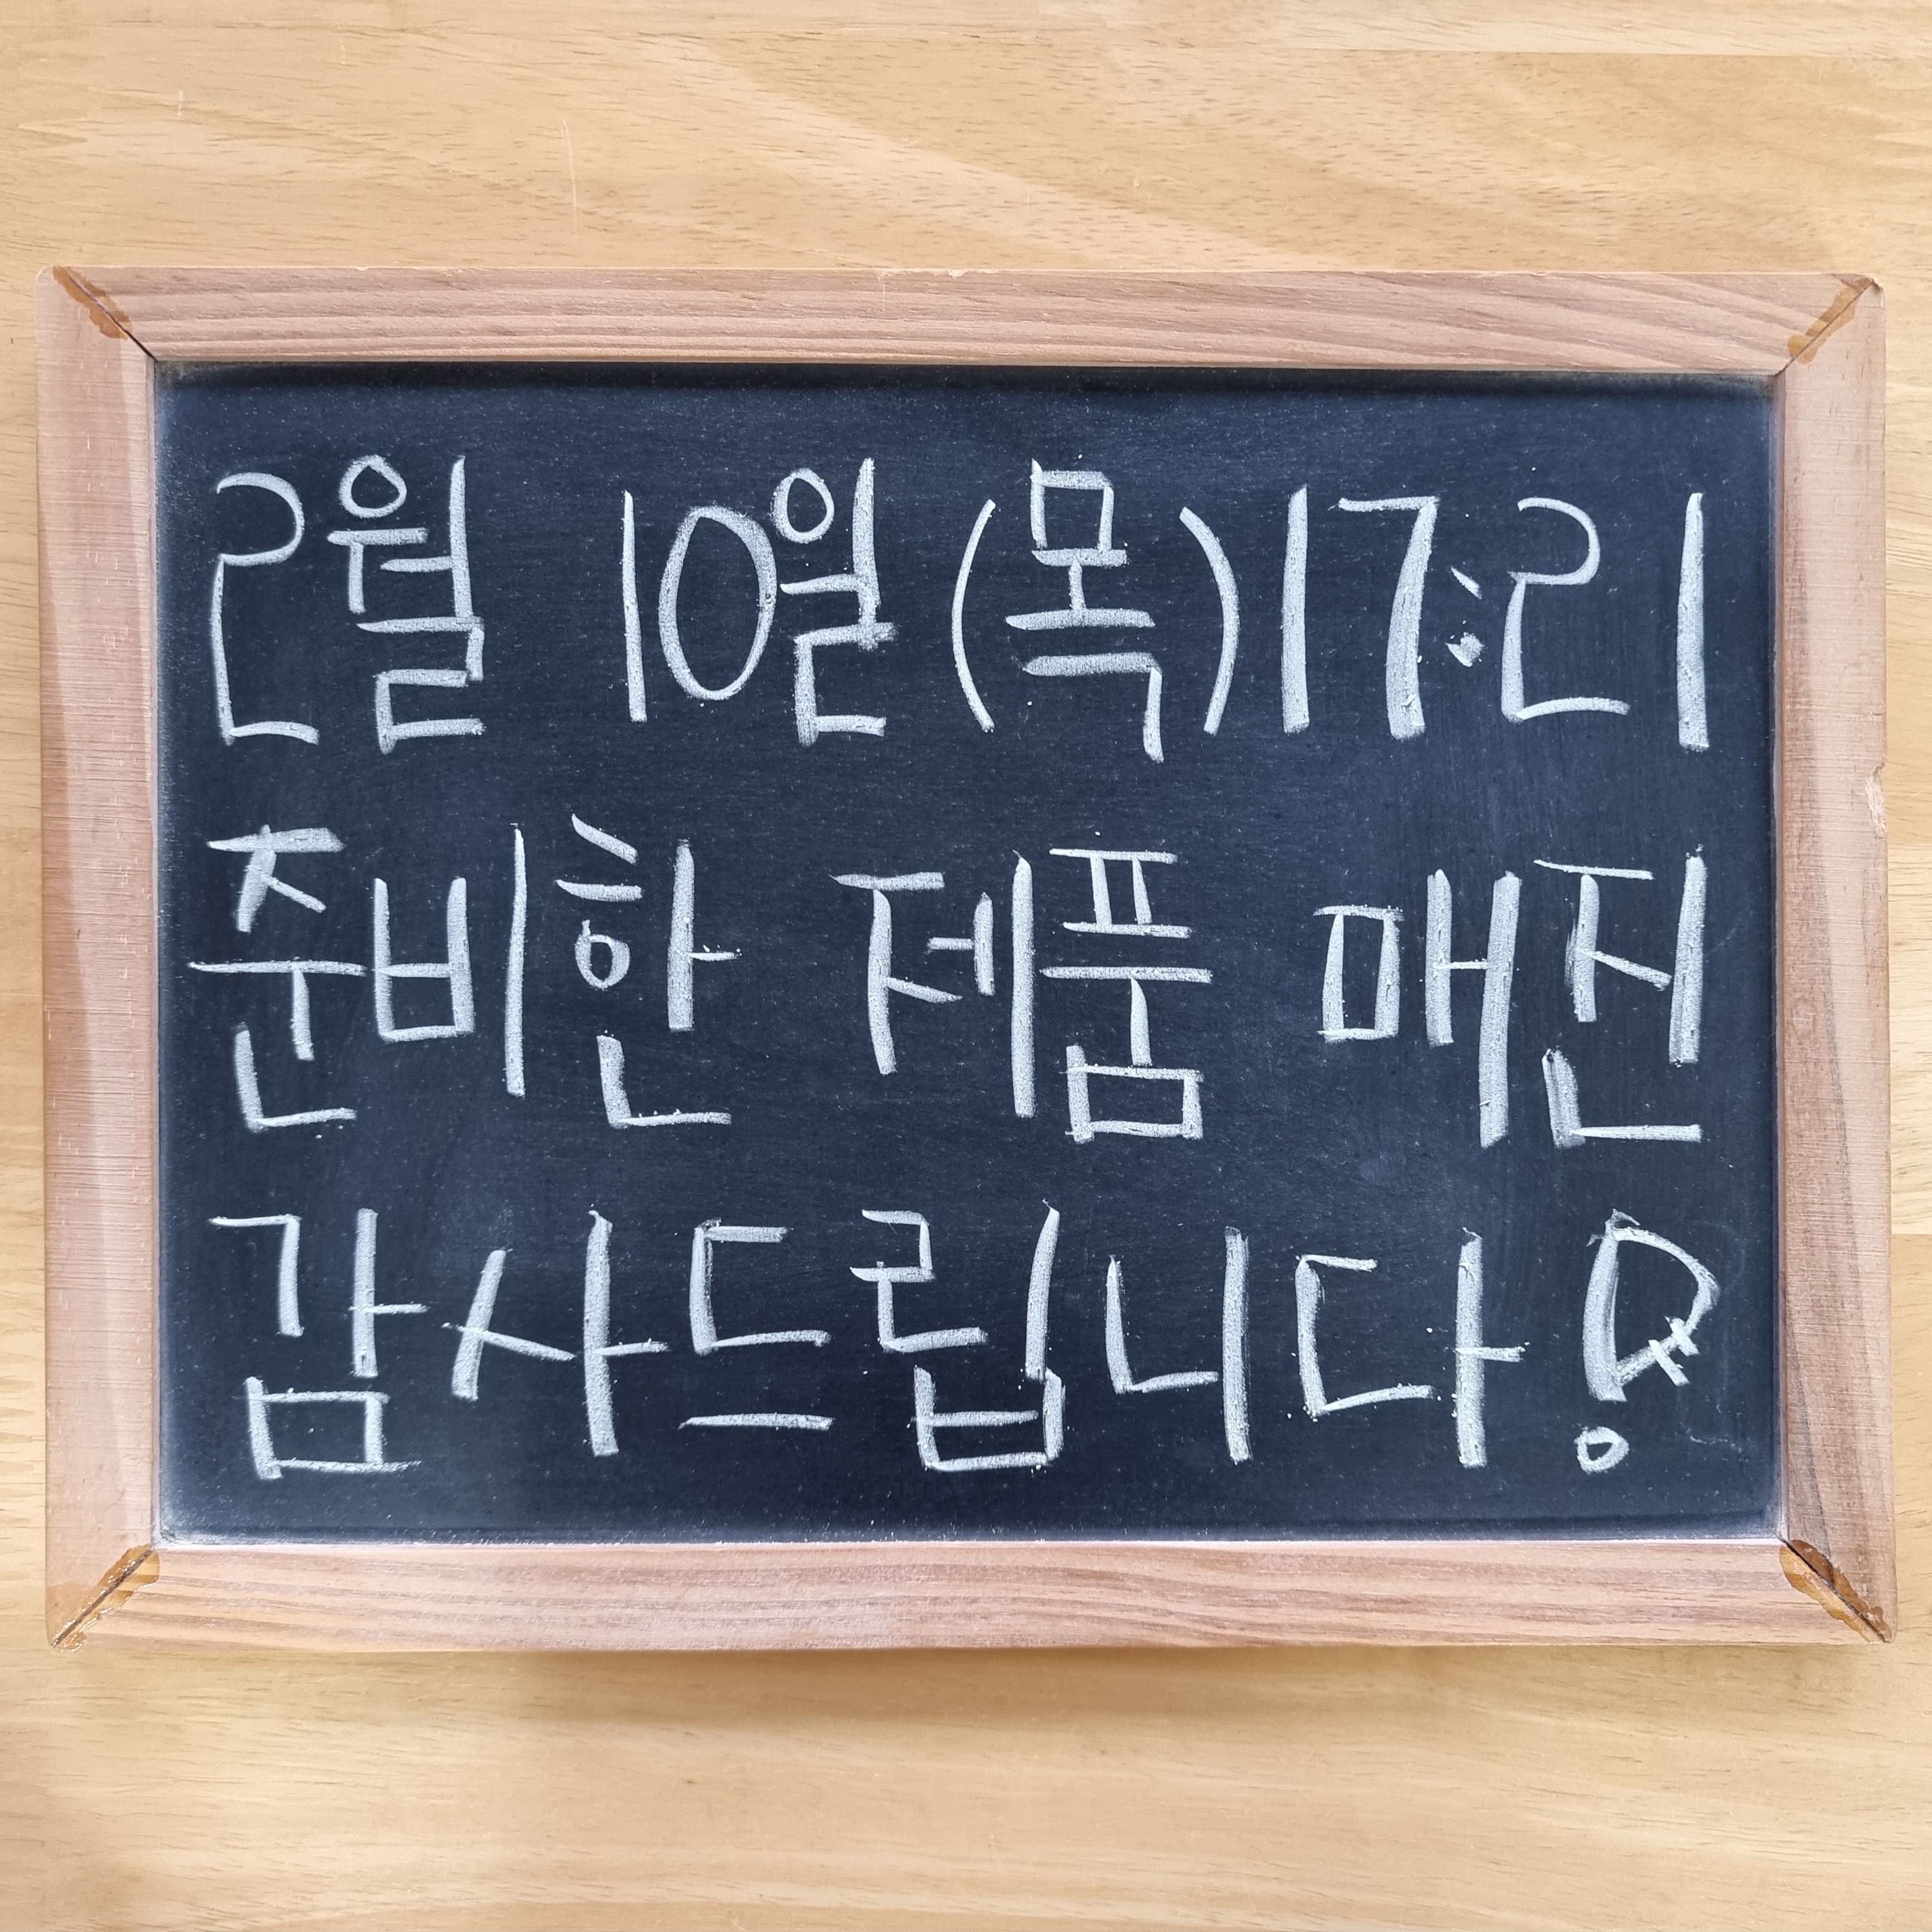 2월 10일 (목) 17:21
준비한 제품 매진
감사드립니다!